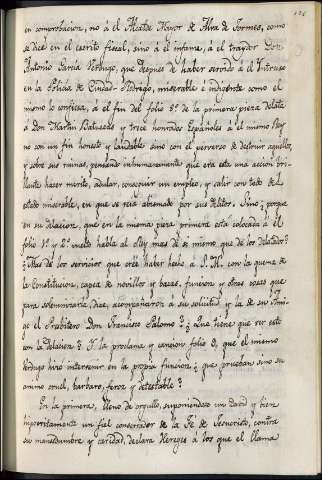 en comprobacion, no á el Alcalde Mayor de Alva de Tormes, como
se dice en el escrito fiscal, sino á el infame, á el traydor Don
Antonio Garcia Verdugo, que despues de haber servido á el Intruso
en la Policia de Ciudad-Rodrigo, miserable e indigente como el
mismo lo confiesa, á el fin del folio 3º de la primera pieza delata
á Don Martin Batuecas y trece honrados Españoles á el mismo Rey
no con un fin honesto y laudable sino con el perverso de destruir aquellos,
y sobre sus ruinas, pensando inhumanamente que era esta una accion bri-
llante hacer merito, adular, conseguir un empleo, y salir con todo de el
estado miserable, en que se veia abismado por sus delitos. Sino ¿porque
en su delacion, que en la misma pieza primera está colocada á el
folio 1º y 2º vuelto habla al Rey mas de si mismo, que de los delatados?
¿Mas de los servicios que cree haber hecho á S. M. con la quema de
la Constitucion, capea de novillos y bacas, funcion y otras cosas que
para solemnizarla, dice, acompañaron á su solicitud y la de su Ami-
go el Presbitero Don Francisco Palomo? ¿Que tiene que ver esto
con la delacion? Y la proclama y cancion folio 9, que el mismo
Verdugo hizo intervenir en la propia funcion ¿que prueban sino su
animo cruel, barbaro, feroz y detestable?
En la primera, lleno de orgullo, suponiendose un David y bien
impropiamente un fiel conservador de la Fe de Jesucristo, contra
su mansedumbre y caridad, declara Hereges á los que el llama